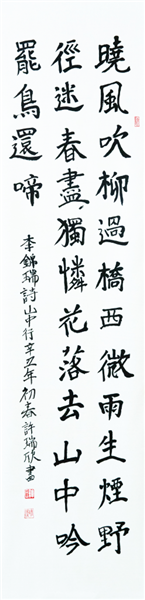 曉風吹柳過橋西微雨生煙野
徑迷春盡獨憐花落去山中吟
罷鳥還啼
李錦瑞詩山中行辛丑年初春許瑞欣書